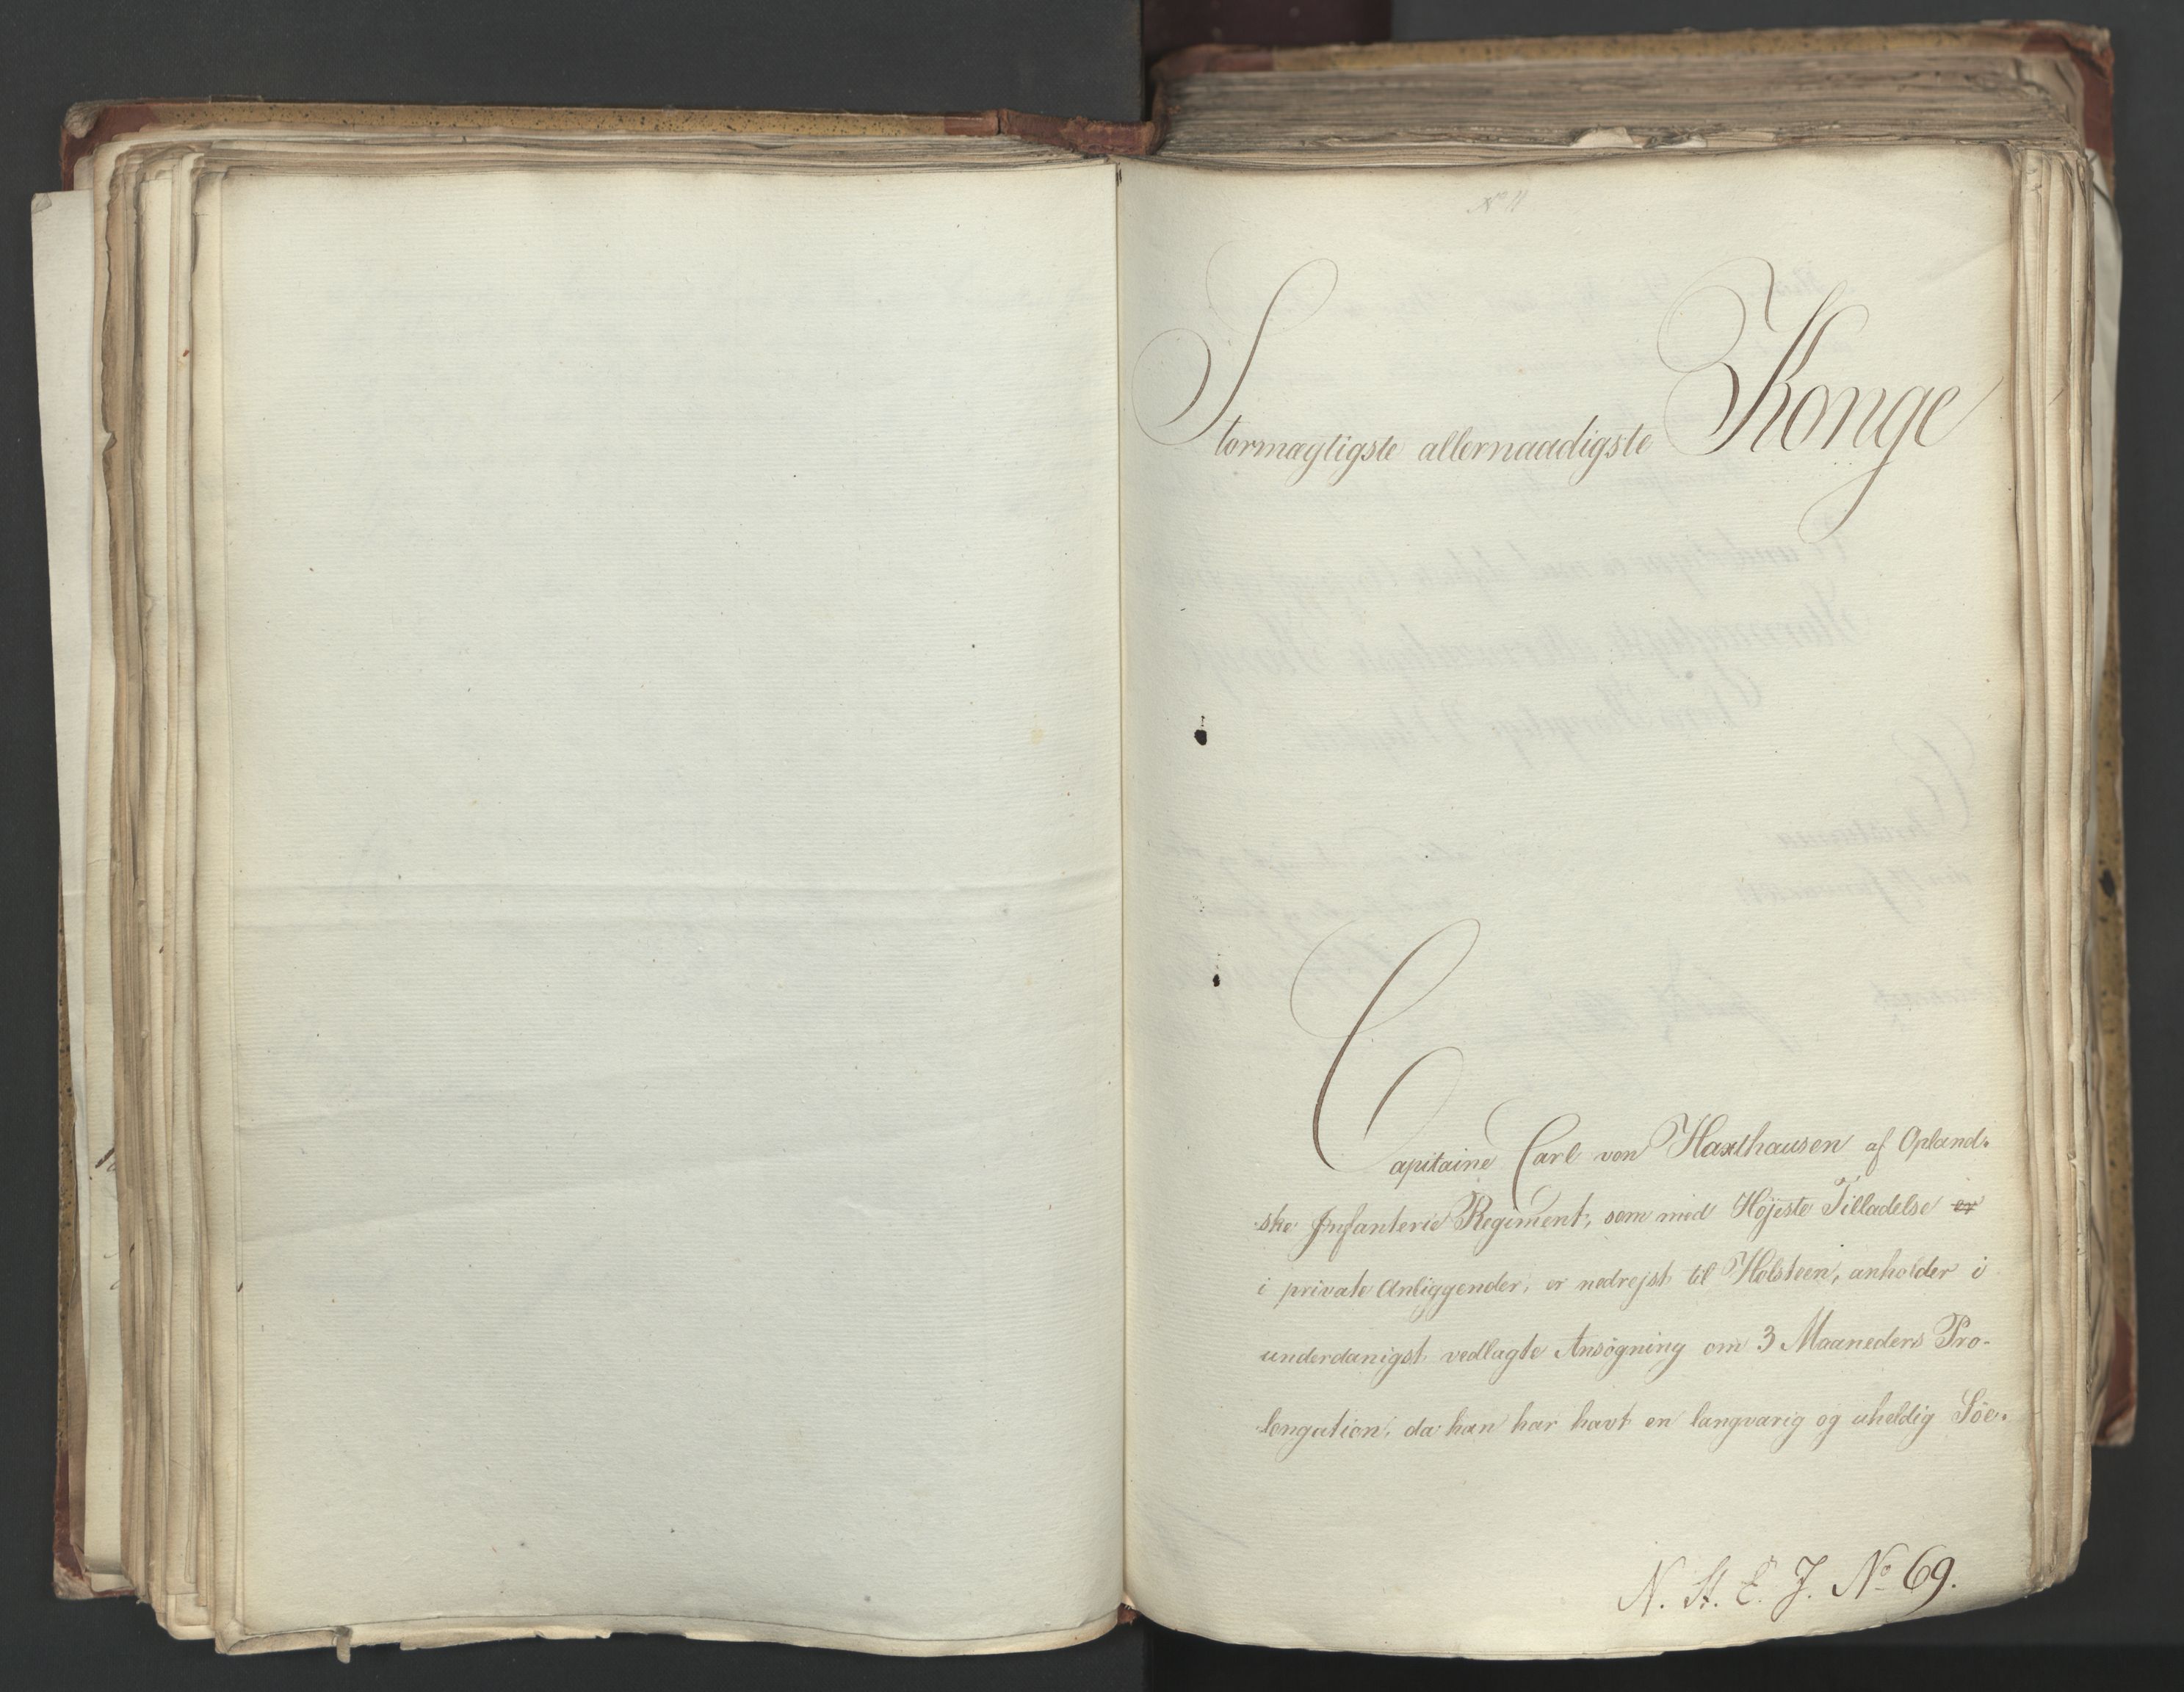 No 11
Stormagtigste allernaadigste Konge
Capitaine Carl von Haxthausen af Opland-
ske Infanterie Regiment, som med Højeste Tilladelse er
i private Anliggender, er nedrejst til Holsteen, anholder i
underdanigst vedlagte Ansögning om 3 Maaneders Pro-
longation, da han har havt en langvarig og uheldig Söe-
N. St. E. J. No 69.